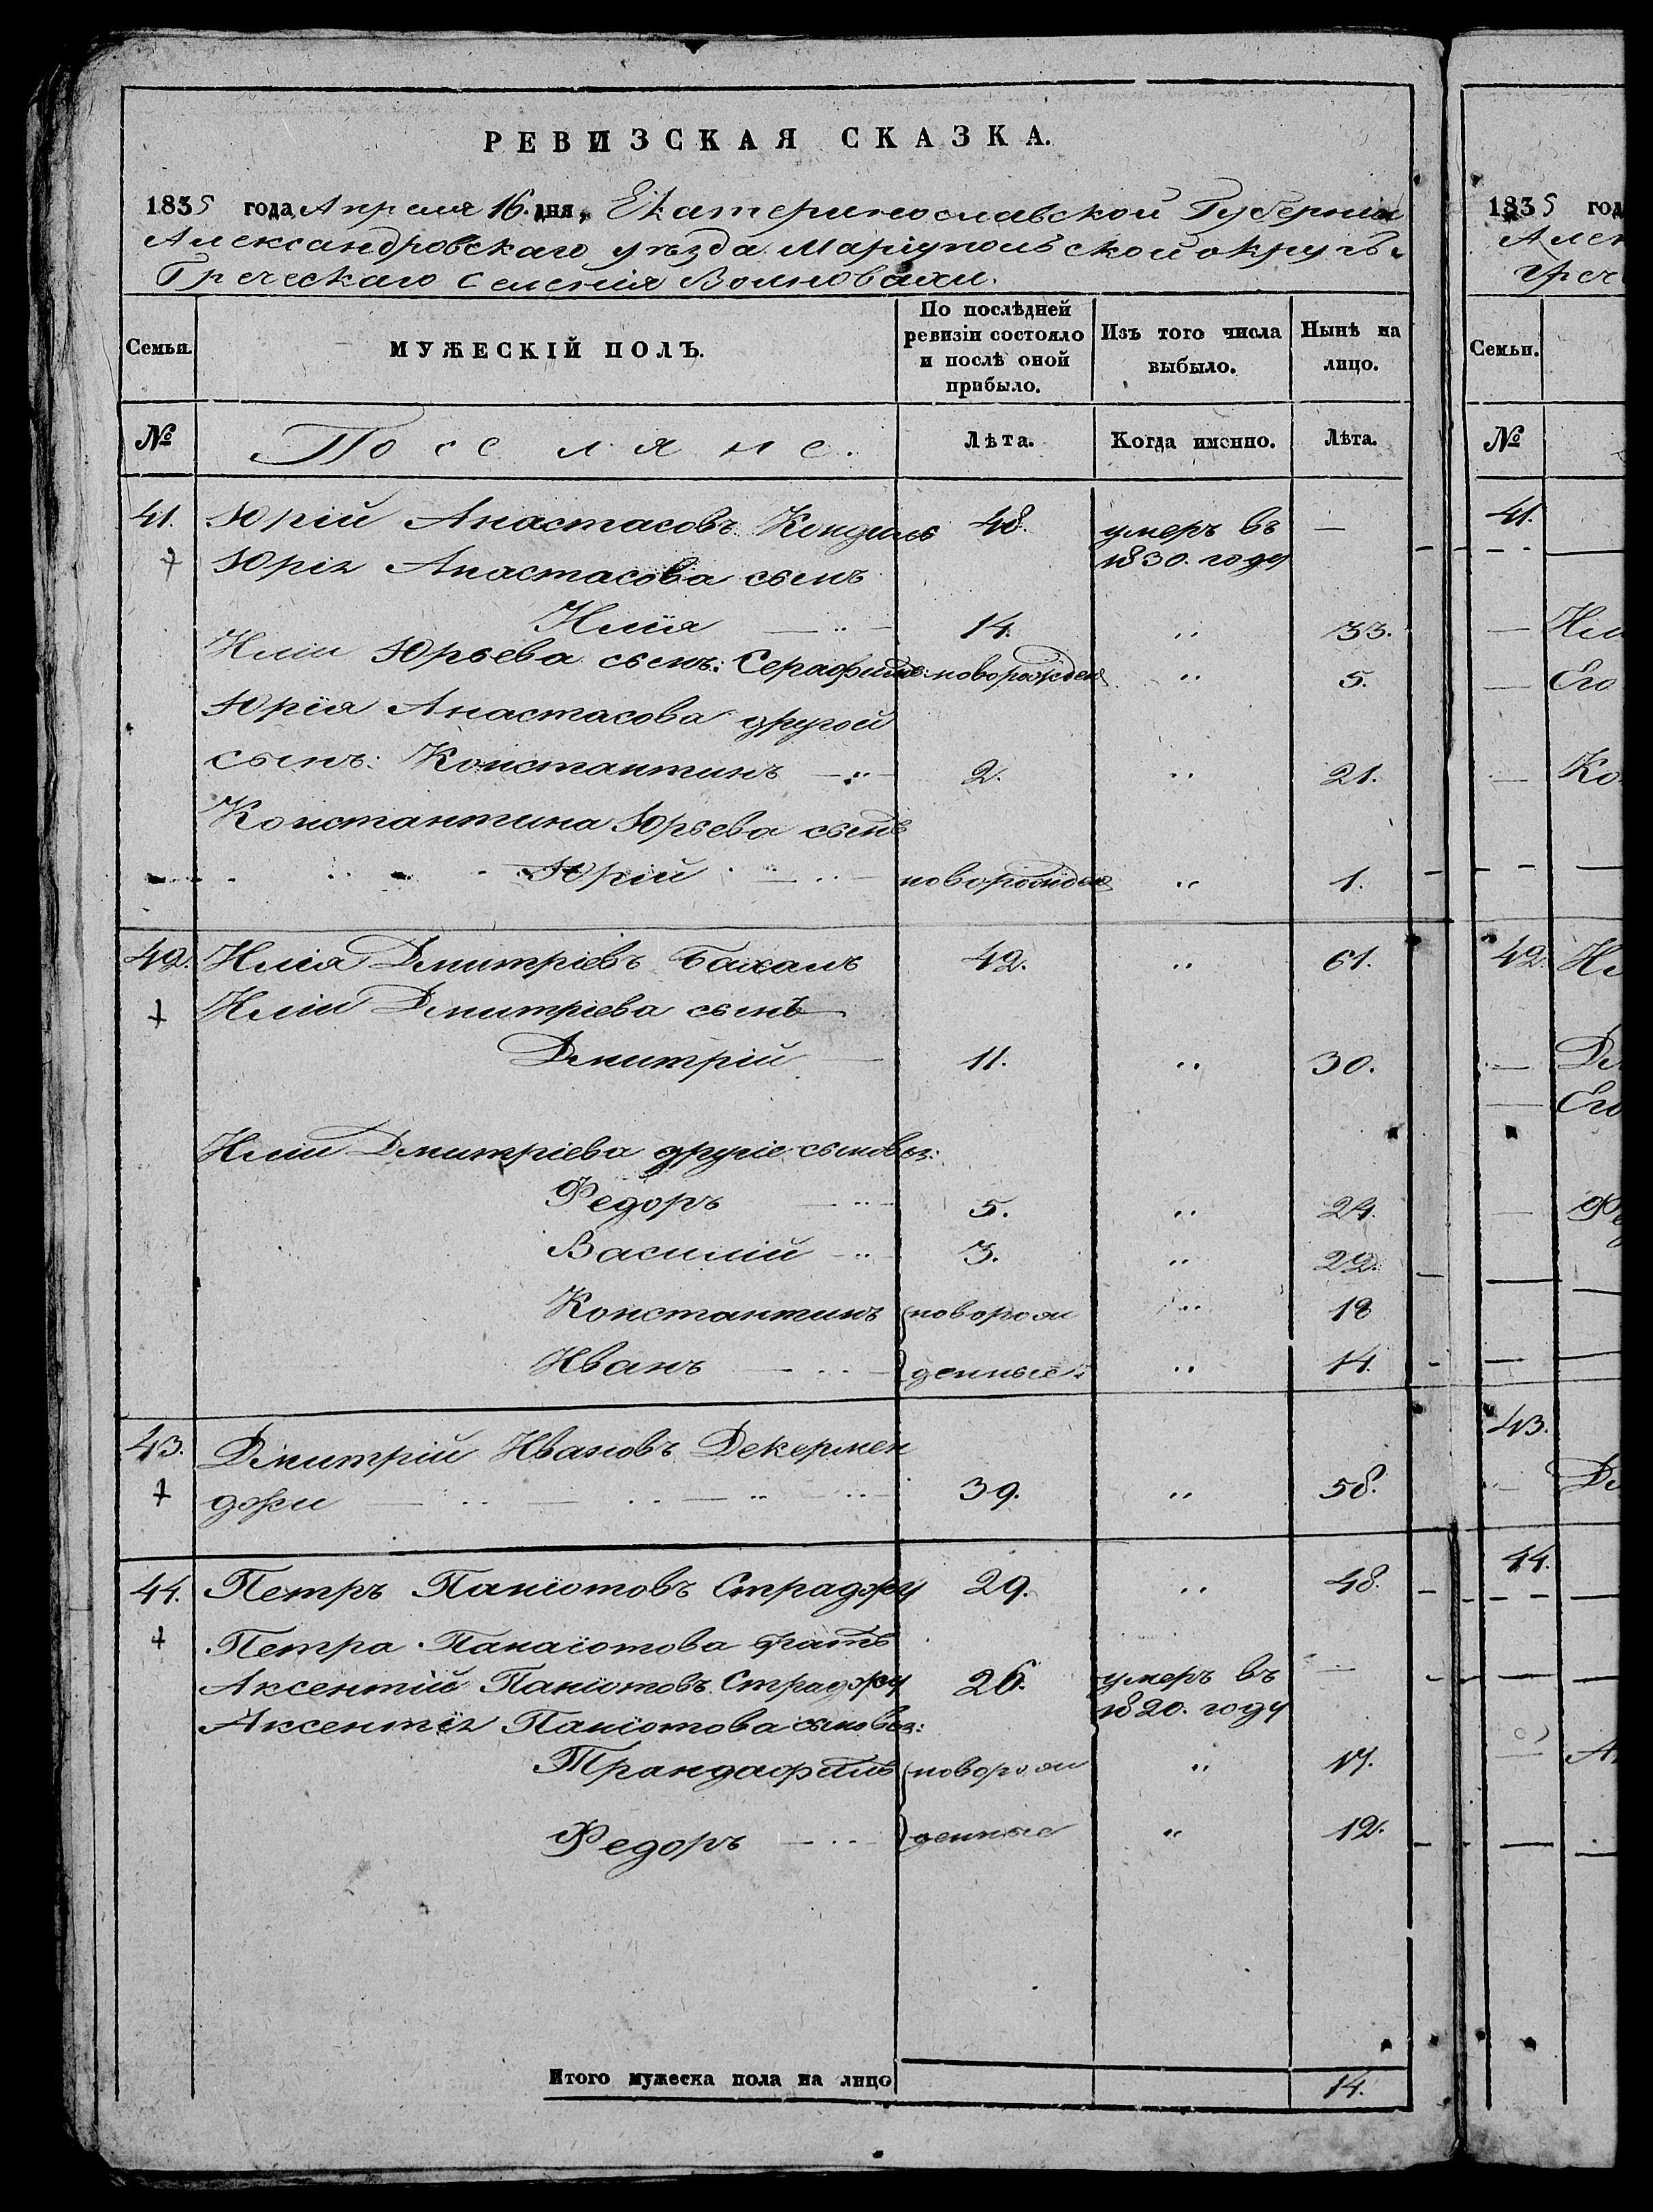 РЕВИЗСКАЯ СКАЗКА.
1835 года Апреля 16. дня, Екатеринославской Губернии
Александровскаго уѣзда Маріупольской округѣ
Греческаго Селенія Волновахи.
Семьи. МУЖЕСКІЙ ПОЛЪ. По послѣдней ревизіи состояло и послѣ оной прибыло. Изъ того числа выбыло. Нынѣ на лицо.
№ Поселяне. Лѣта. Когда именно. Лѣта.
41. Юрій Анастасовъ 48. умеръ въ —
Юрія Анастасова сынъ 1830. году
Илія — 14. „ 33.
Иліи Юрьева сынъ: Серафимъ новорожден „ 5.
Юрія Анастасова другой
сынъ: Константинъ — 2. „ 21.
Константина Юрьева сынъ
Юрій — новорожден „ 1.
42. Илія Дмитріевъ Бахалъ 42. „ 61.
Иліи Дмитріева сынъ
Дмитрій — 11. „ 30.
Иліи Дмитріева другіе сыновья:
Федоръ — 5. „ 24.
Василій — 3. „ 22.
Константинъ новорож „ 18
Иванъ — денные. „ 14.
43. Дмитрій Ивановъ Декермен
джи — 39. „ 58.
44. Петръ Паніотовъ Страджу 29. „ 48.
Петра Панаіотова братъ
Аксентій Паніотовъ Страджу 26. умеръ въ —
Аксентія Паніотова сыновья: 1820. году
Трандафилъ новорож „ 17.
Федоръ — денные „ 12.
Итого мужеска пола на лицо 14.
1835 год
Алек
Греч
Семьи.
№
41.
Ил
Его
Ко
42. Ил
Дм
Его
Фе
43.
Дм
44.